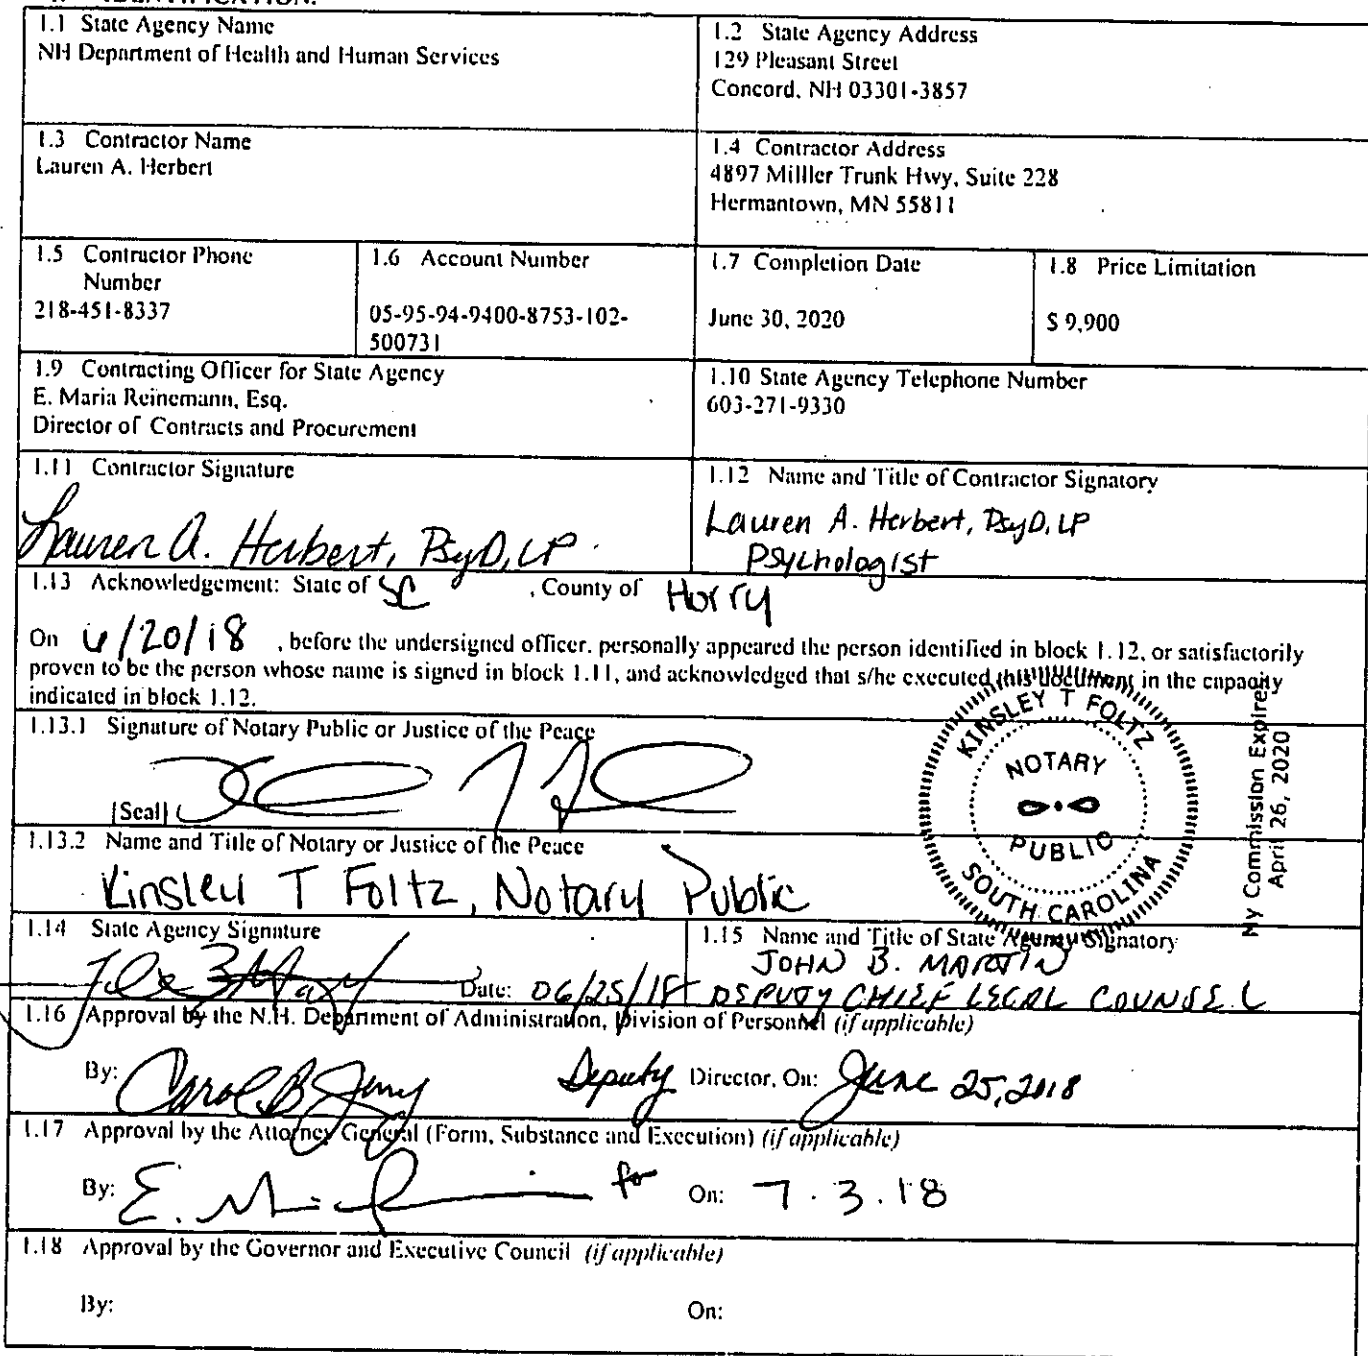 1. IDENTIFICATION.
1.1 State Agency Name
NH Department of Health and Human Services
1.2 State Agency Address
129 Pleasant Street
Concord, NH 03301-3857
1.3 Contractor Name
Lauren A. Herbert
1.4 Contractor Address
4897 Milller Trunk Hwy, Suite 228
Hermantown, MN 55811
1.5 Contractor Phone
Number
218-451-8337
1.6 Account Number
05-95-94-9400-8753-102-
500731
1.7 Completion Date
June 30, 2020
1.8 Price Limitation
$ 9,900
1.9 Contracting Officer for State Agency
E. Maria Reinemann, Esq.
Director of Contracts and Procurement
1.10 State Agency Telephone Number
603-271-9330
1.11 Contractor Signature
Lauren A. Herbert, PsyD, LP.
1.12 Name and Title of Contractor Signatory
Lauren A. Herbert, PsyD, LP
Psychologist
1.13 Acknowledgement: State of SC , County of Horry
On 6/20/18 , before the undersigned officer, personally appeared the person identified in block 1.12, or satisfactorily
proven to be the person whose name is signed in block 1.11, and acknowledged that s/he executed this document in the capacity
indicated in block 1.12.
1.13.1 Signature of Notary Public or Justice of the Peace
[Seal]
KINSLEY T FOLTZ
NOTARY
PUBLIC
SOUTH CAROLINA
My Commission Expires
April 26, 2020
1.13.2 Name and Title of Notary or Justice of the Peace
Kinsley T Foltz, Notary Public
1.14 State Agency Signature
Date: 06/25/18
1.15 Name and Title of State Agency Signatory
JOHN B. MARTIN
DEPUTY CHIEF LEGAL COUNSEL
1.16 Approval by the N.H. Department of Administration, Division of Personnel (if applicable)
By: Deputy Director, On: June 25, 2018
1.17 Approval by the Attorney General (Form, Substance and Execution) (if applicable)
By: for On: 7.3.18
1.18 Approval by the Governor and Executive Council (if applicable)
By: On: